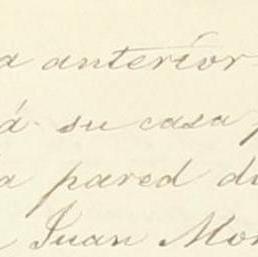 a anterior
á su casa
a pared di
Juan Mor